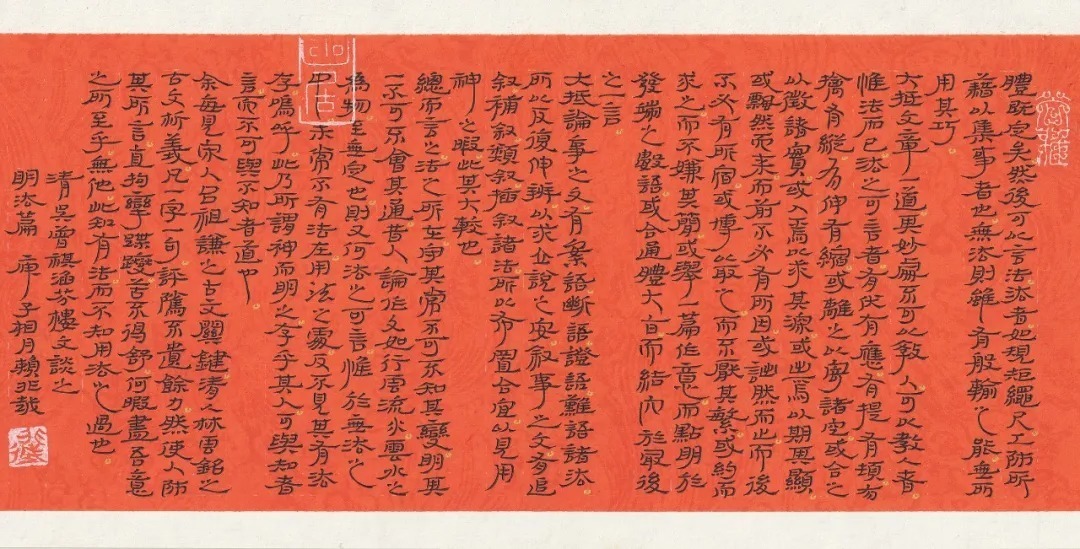 體既定矣然後可以言法法者如規矩繩尺工師所
藉以集事者也無法則雖有般輸之能無所
用其巧
大抵文章一道其妙處不可以教人可以教人者
惟法而已法之可言者有伏有應有提有頓有
擒有縱有伸有縮或離之以寄諸空或合之
以徵諸實或入焉以求其深或出焉以期其顯
或翩然而來而前不必有所因或詘然而止而後
不必有所宿或博以取之而不厭其繁或約而
求之而不嫌其簡或舉一篇作意而點明於
發端之數語或合通體大旨而結穴於最後
之一言
大抵論事之文有案語斷語證語難語諸法
所以反復伸辨以求企說之安敘事之文有追
敘補敘類敘插敘諸法所以布置合宜以見用
神之暇此其大較也
總而言之法之所在守其常不可不知其變明其
一不可不會其通昔人論作文如行雲流水雲水之
為物至無定也則又何法之可言惟於無法之
中未常不有法在用法之處反不見其有法
存嗚呼此乃所謂神而明之存乎其人可與知者
言而不可與不知者道也
余每見宋人呂祖謙之古文關鍵清之林雲銘之
古文析義凡一字一句評騭不遺餘力然使人師
其所言直拘攣蹀躞苦不得舒何暇盡吾意
之所至乎無他此知有法而不知用法之過也
清吳曾祺涵芬樓文談之
明法篇 庚子相月